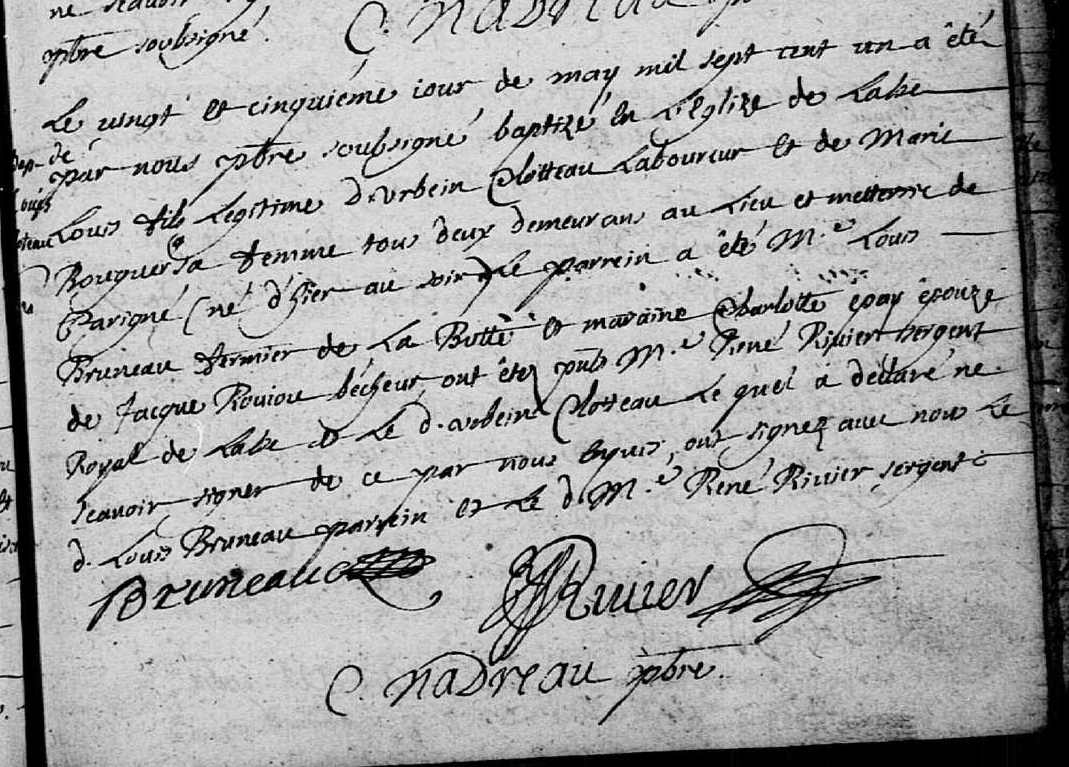 ne scavoir
pbre soubsigné. C. Nadreau
Le vingt et cinquiéme iour de may mil sept cent un a êté
par nous pbre soubsigné baptizé En L'Eglize de
Bap. de Louis
Louis fils Legitime d'Vrbein Clotteau Laboureur Et de Marie
sa femme tous deux demeurans au Lieu et metterie de
Parigné (né d'hier au soir) Le parrein a êté M.e Louis
Bruneau fermier de La Butte Et maraine Charlotte épouze
de Jacque Rouiou bécheur, ont êtez pnts M.e René Rivier sergent
Royal de & Le d. vrbein Clotteau Le quel a déclaré ne
scavoir signer de ce par nous enquis, ont signez avec nous Le
d. Louis Bruneau parrein et Le d. M.e René Rivier sergent
Bruneau
Rivier
C. Nadreau pbre.